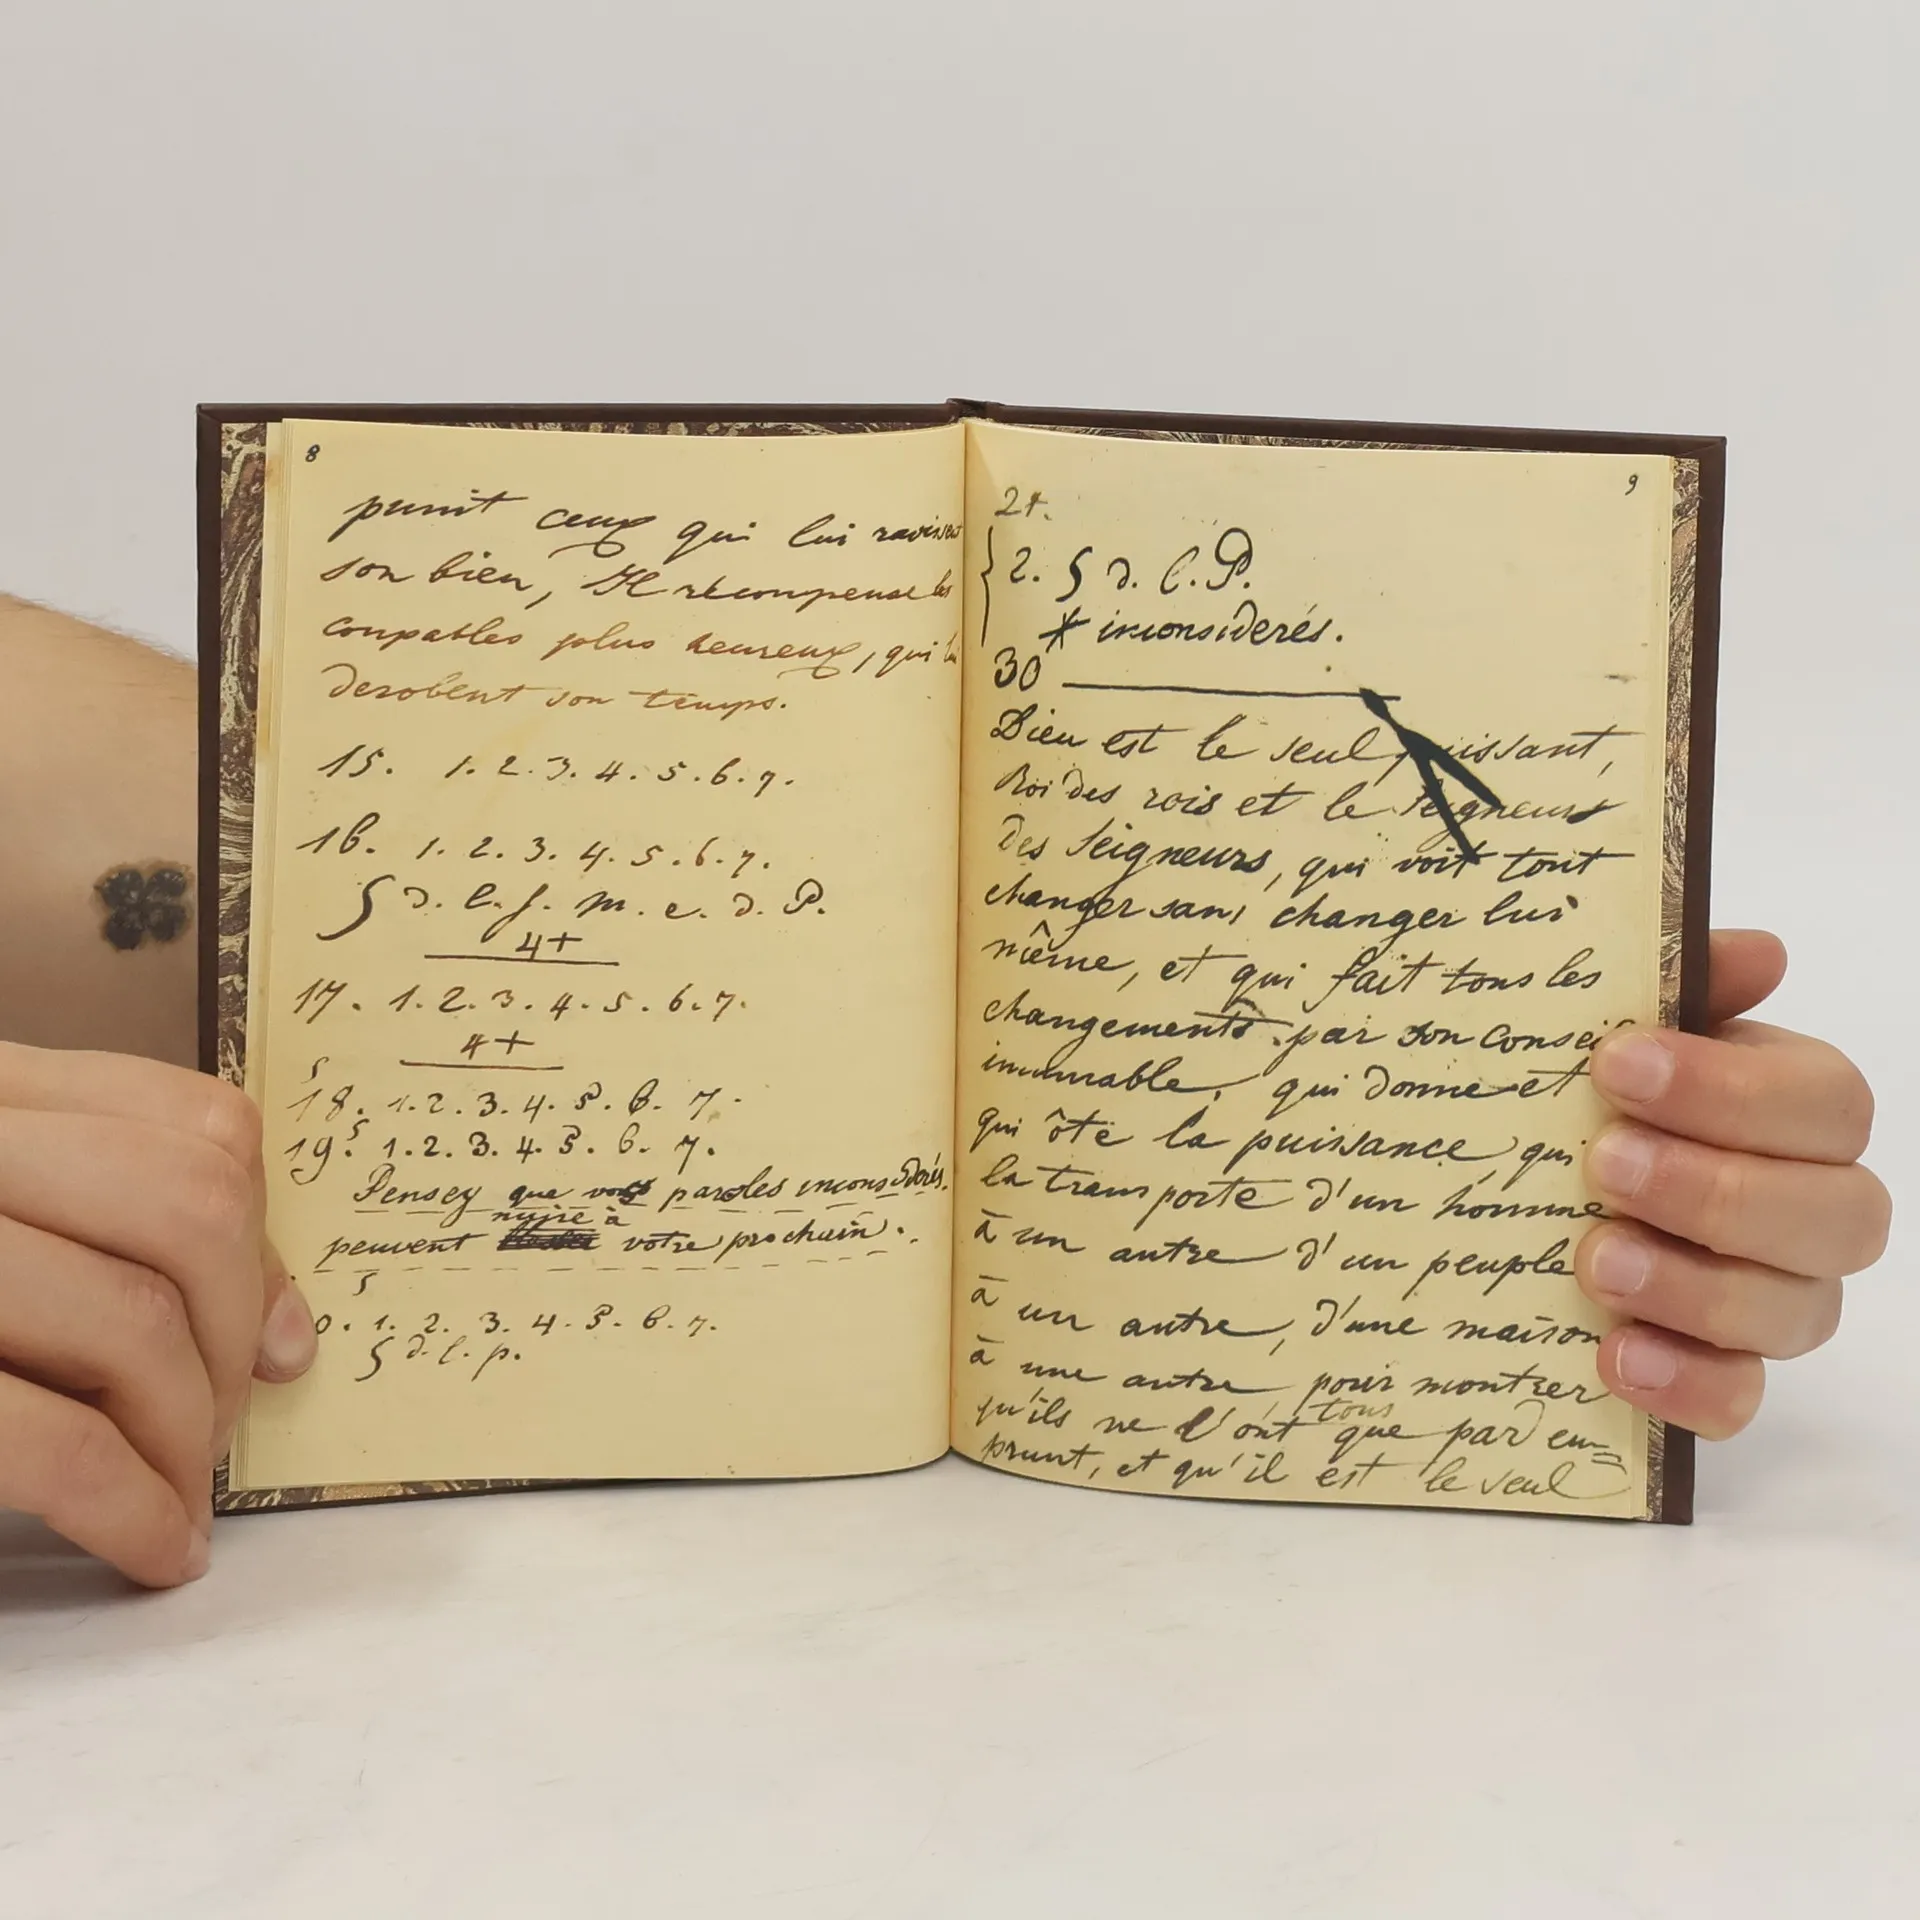 8
punit ceux qui lui ravissent
son bien, Il récompense les
coupables plus heureux, qui lui
derobent son temps.
15. 1. 2. 3. 4. 5. 6. 7.
16. 1. 2. 3. 4. 5. 6. 7.
§ d. l. f. m. e. d. P.
4+
17. 1. 2. 3. 4. 5. 6. 7.
4+
s
18. 1. 2. 3. 4. 5. 6. 7.
s
19. 1. 2. 3. 4. 5. 6. 7.
Pensey que vos paroles inconsidorés.
nuire à
peuvent votre prochain.
s
0. 1. 2. 3. 4. 5. 6. 7.
§ d. l. p.
9
2+.
2. § d. l. P.
* inconsiderés.
30
Dieu est le seul puissant,
Roi des rois et le Seigneurs
des Seigneurs, qui voit tout
changer sans changer lui
même, et qui fait tous les
changements par son conseil
immuable, qui donne et
qui ôte la puissance, qui
la transporte d'un homme
à un autre d'un peuple
à un autre, d'une maison
à une autre, pour montrer
tous
qu'ils ne l'ont que par em=
prunt, et qu'il est le seul